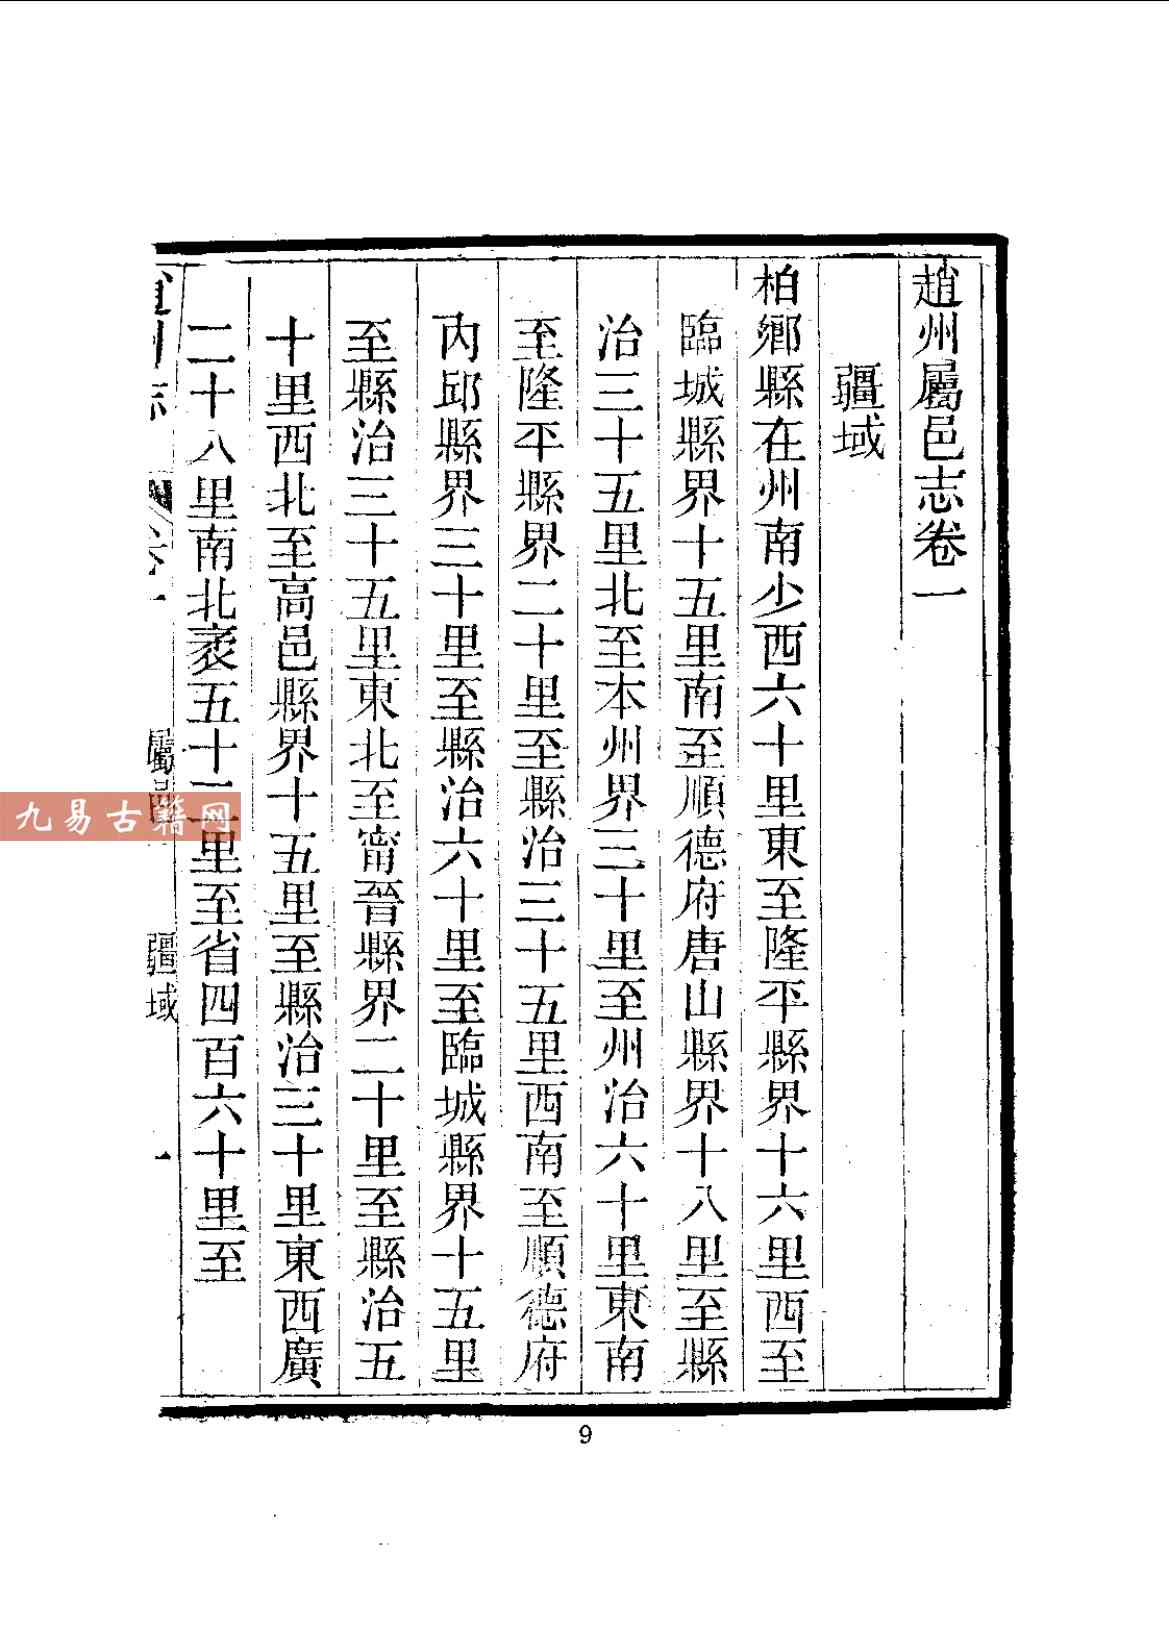 趙州屬邑志卷一
疆域
柏鄉縣在州南少西六十里東至隆平縣界十六里西至
臨城縣界十五里南至順德府唐山縣界十八里至縣
治三十五里北至本州界三十里至州治六十里東南
至隆平縣界二十里至縣治三十五里西南至順德府
內邱縣界三十里至縣治六十里至臨城縣界十五里
至縣治三十五里東北至甯晉縣界二十里至縣治五
十里西北至高邑縣界十五里至縣治三十里東西廣
二十八里南北袤五十二里至省四百六十里至
趙州志
卷一
屬邑
疆域
一
九易古籍网
9